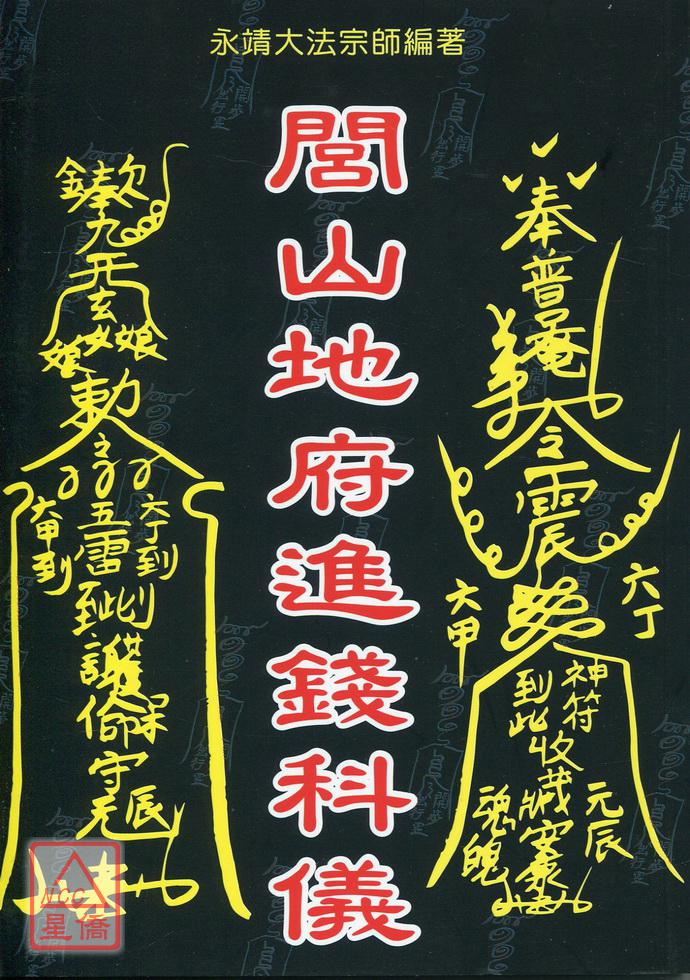 永靖大法宗師編著
閭山地府進錢科儀
奉普庵
令
震
六丁
六甲
神符
到此收藏
元辰
魂魄
安奉
九天
玄女
娘娘
勅
六丁到
六甲到
五雷
到此
護
保
守
元辰
NCC
星僑